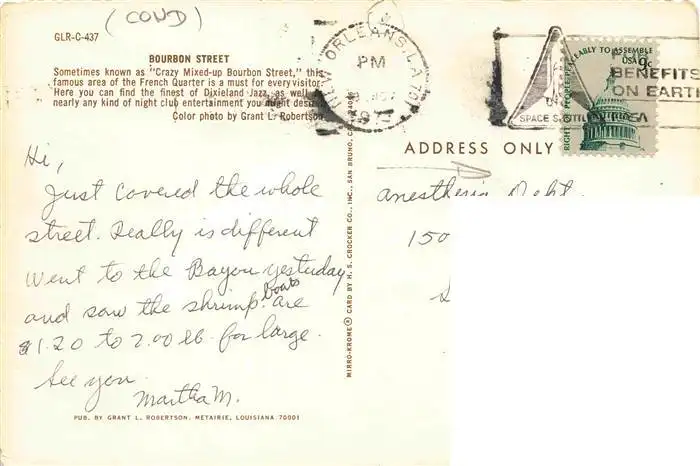 (COND)
GLR-C-437
BOURBON STREET
Sometimes known as "Crazy Mixed-up Bourbon Street," this
famous area of the French Quarter is a must for every visitor.
Here you can find the finest of Dixieland Jazz, as well as
nearly any kind of night club entertainment you might desire.
Color photo by Grant L. Robertson
Hi,
Just covered the whole
street. Really is different
Went to the Bayou yesterday
and saw the shrimp boats are
$1.20 to 2.00 lb. for large.
See you
Martha M.
PUB. BY GRANT L. ROBERTSON, METAIRIE, LOUISIANA 70001
MIRRO-KROME® CARD BY H. S. CROCKER CO., INC., SAN BRUNO, CA
NEW ORLEANS, LA
PM
SPACE SHUTTLE USA
BENEFITS
ON EARTH
RIGHT OF PEOPLE PEACEABLY TO ASSEMBLE
USA 9c
ADDRESS ONLY
Anesthesia Dept.
150